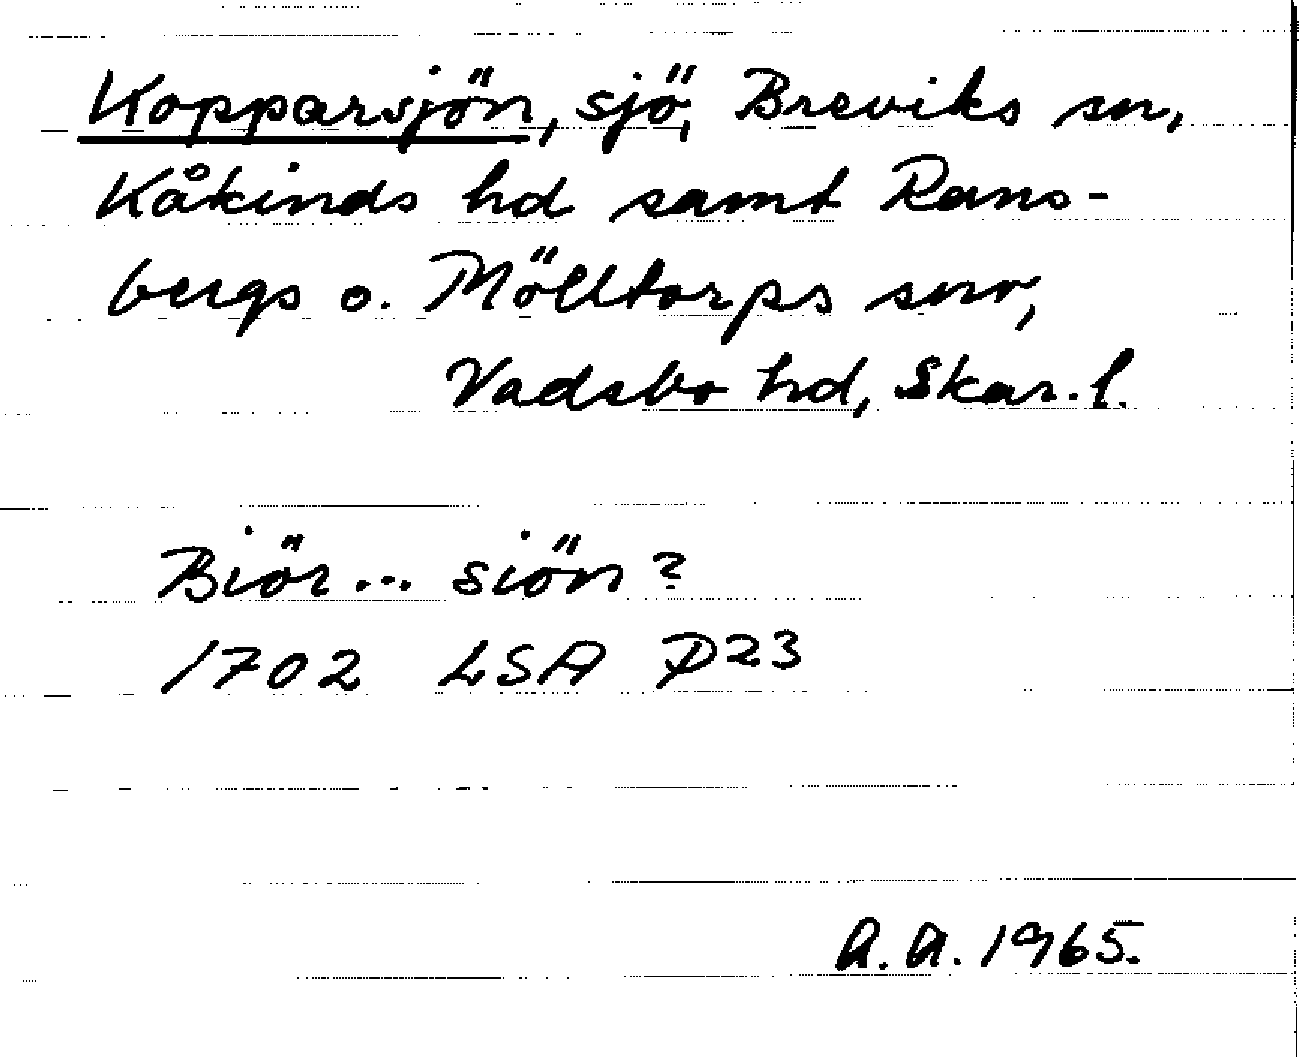 Kopparsjön, sjö, Breviks sn,
Kåkinds hd samt Rans-
bergs o. Mölltorps snr,
Vadsbo hd, Skar. l.
Biör... siön?
1702 LSA P23
A. A. 1965.